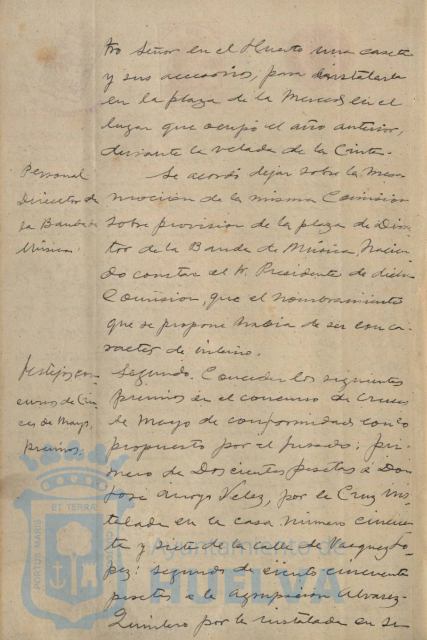 tro Señor en el Huerto una caseta
y sus accesorios, para instalarla
en la plaza de la Merced en el
lugar que ocupó el año anterior,
durante la velada de la Cinta.
Personal
Director de
la Banda de
Música.
Se acordó dejar sobre la Mesa
moción de la misma Comisión
sobre provisión de la plaza de Direc
tor de la Banda de Música, hacien
do constar el Sr. Presidente de dicha
Comisión, que el nombramiento
que se propone habia de ser con ca
racter de interino.
Festejos, con-
curso de Cru
ces de Mayo,
premios.
Segundo. Conceder los siguientes
premios en el concurso de Cruces
de Mayo de conformidad con lo
propuesto por el Jurado: pri
mero de Doscientas pesetas a Don
José Velez, por la Cruz ins
talada en la casa número cincuen
ta y siete de la calle de Vazquez Lo
pez: segundo de ciento cincuenta
pesetas a la Agrupación Alvarez-
Quintero por la instalada en su
PORTUS MARIS ET TERRAE
Ayuntamiento de
HUELVA